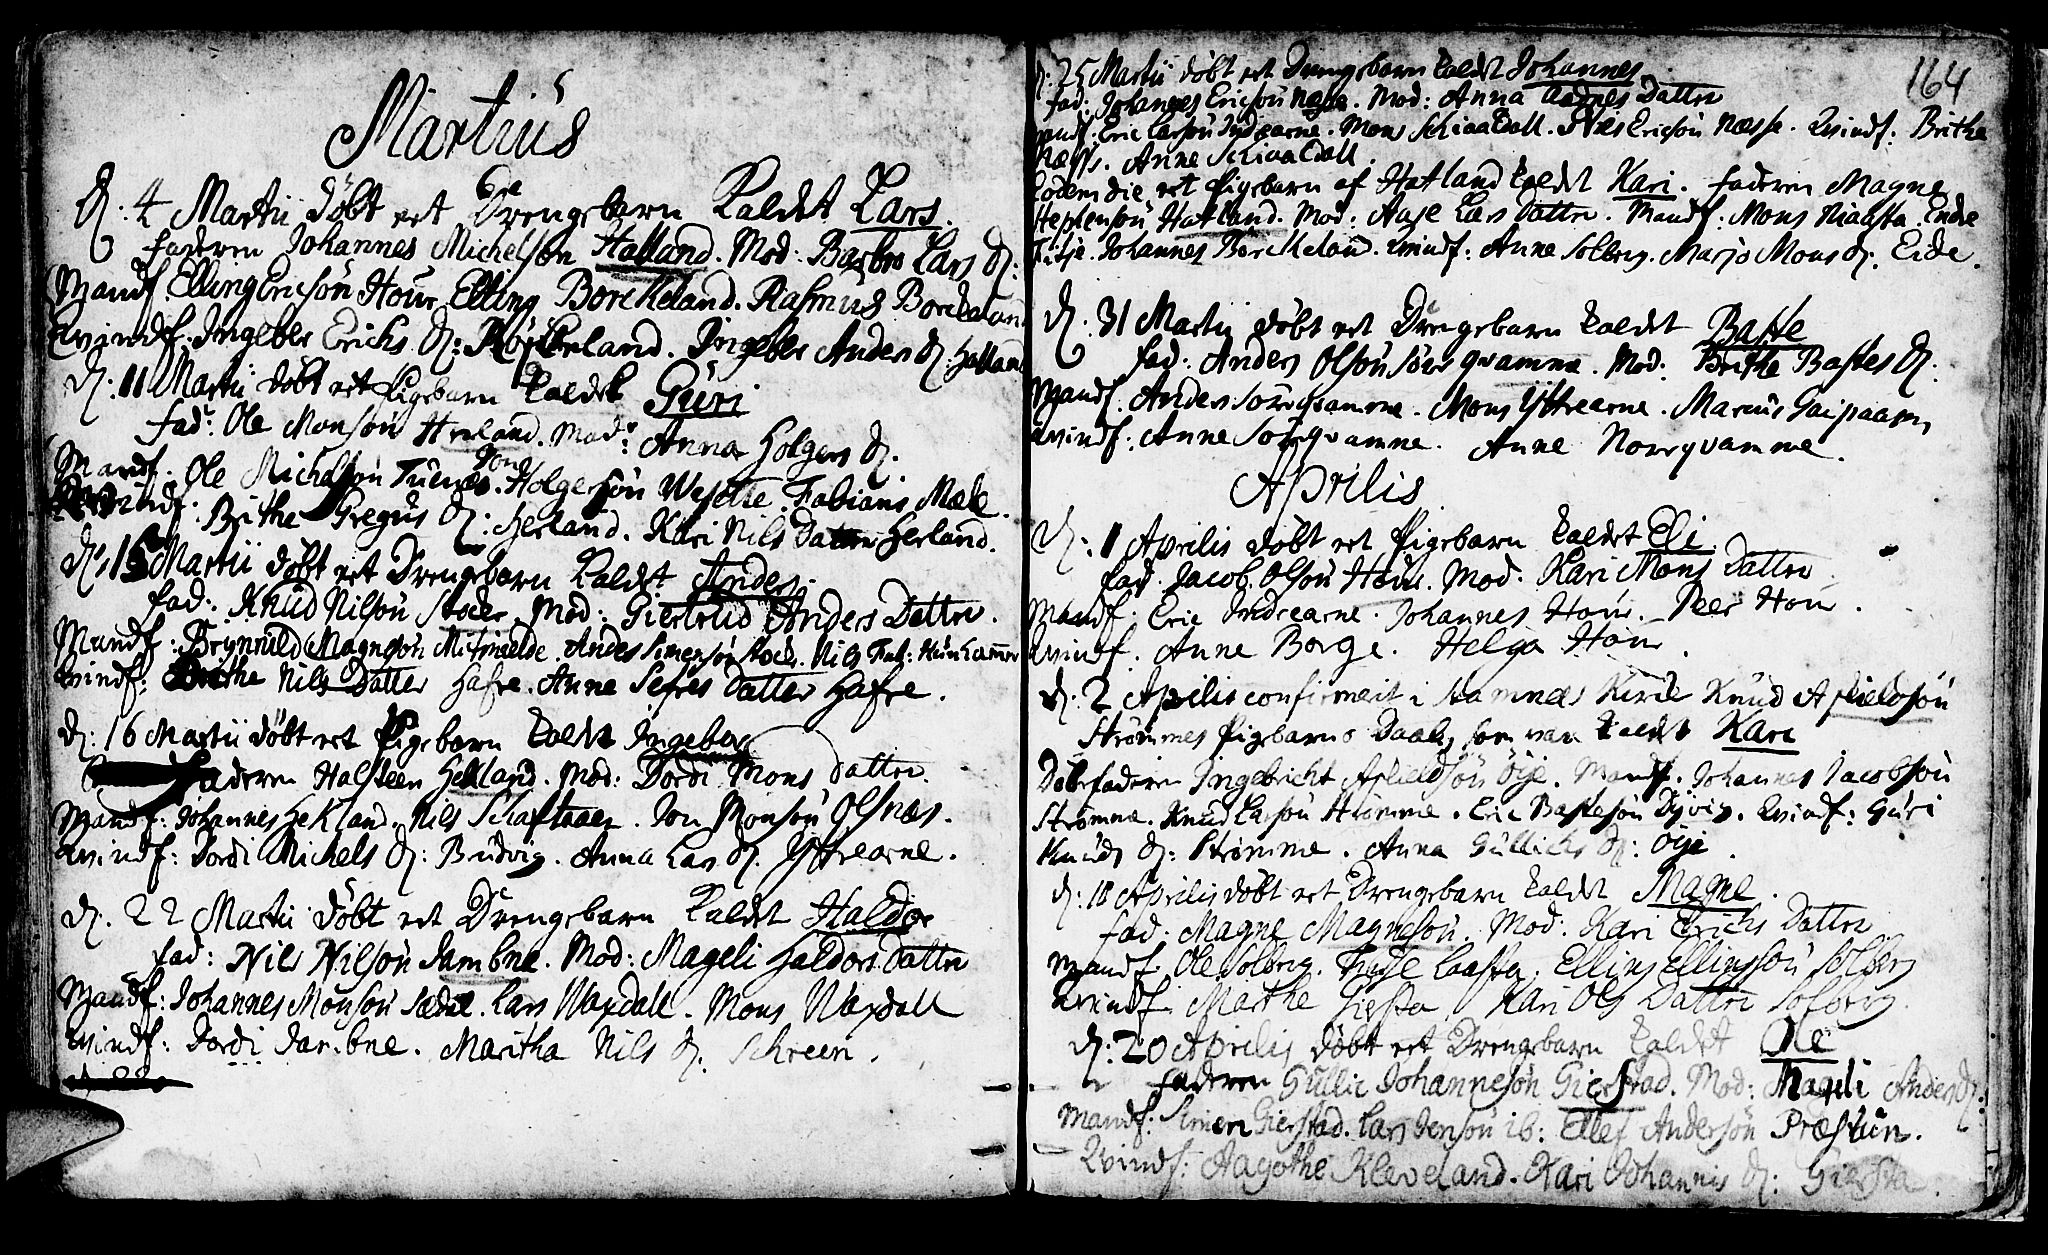 Martius
D: 4 Martii döbt eet Drengebarn kaldet Lars.
faderen Johannes Michelsön Hatland. Mod: Barbro Lars D:
Mandf. Elling Ericsön Hour Elling Borckeland. Rasmus Borckeland
Qvindf: Ingebor Erichs D: Röskeland. Ingebor Anders D: Hatland
D: 11 Martii döbt eet Pigebarn kaldet Güri
fad: Ole Monsön Herland. Mod: Anna Holgers D.
Mandf. Ole Michelsön Tuenes. Jon Holgersön Wesetre. Fabians Mæle.
Qvindf. Brithe Gregus D: Herland. Kari Nils Datter Herland.
D: 15 Martii döbt eet Drengebarn kaldet Anders.
fad: Knud Nilsön Stocke. Mod: Giertrud Anders Datter.
Mandf: Brynnild Magnesön Mitfielde. Anders Simensön Stocke. Nils
Qvindf: Brithe Nils Datter Hafre. Anne Sefres Datter Hafre.
D: 16 Martii döbt eet Pigebarn kaldt Ingebor
faderen Halsteen Hekland. Mod: Dordi Mons Datter.
Mandf: Johannes Hekland. Nils Schaftaaen. Jon Monsön Olsnæs.
Qvindf: Dordi Michels D: Budvig. Anna Lars D. Yttrearne.
D: 22 Martii döbt eet Drengebarn kaldet Haldor
fad: Nils Nilsön Dambne. Mod: Mageli Haldors Datter
Mandf: Johannes Monsön Sædal. Lars Waxdall. Mons Waxdall
Qvindf: Dordi Dambne. Maritha Nils D. Schreen.
164
D: 25 Martii döbt eet Drengebarn kaldet Johannes
fad: Johannes Ericsön Næsse. Mod: Anna Aadnes Datter
Mandf: Eric Larsön Indrearne. Mons Schiaaldall. Nils Ericsön Næsse. Qvindf: Brithe
Næsse. Anne Schiaaldall.
Eodem die eet Pigebarn af Hatland kaldet Kari. faderen Magne
Stephensön Hatland. Mod: Aase Lars Datter. Mandf: Mons Niaasta. Endre
Titje. Johannes Borckeland. Qvindf: Anne Solberg. Marjo Mons D. Eide.
D: 31 Martii döbt eet Drengebarn kaldet Baste
fad: Anders Olsön Sörreqvamme. Mod: Brithe Bastes D:
Mandf. Anders Sörreqvamme. Mons Yttrearne. Marcus Gaupaasen
Qvindf: Anne Sörreqvamme. Anne Norreqvamme.
Aprilis
D: 1 Aprilis döbt eet Pigebarn kaldet Eli.
fad. Jacob Olsön Hour. Mod. Kari Mons Datter.
Mandf: Eric Indrearne. Johannes Hour. Peer Hour.
Qvindf. Anne Borge. Helga Hour.
D: 2 Aprilis confirmerit i Stamnæs Kirke Knud Aslieldsön
Strømmes Pigebarns Daab, som var kaldet Kari
Döbefaderen Ingebricht Aslieldsön Øije. Mandf. Johannes Jacobsön
Strømme. Knud Larsön Strømme. Eric Bastesön Dyvig. Qvindf: Güri
Knuds D: Strømme. Anna Güllichs D: Øije.
D: 18 Aprilis döbt eet Drengebarn kaldet Magne.
fad: Magne Magnesön. Mod: Kari Erichs Datter
Mandf. Ole Solberg. Elling Ellingsön Solberg
Qvindf. Marthe Giersta. Kari Ols Datter Solberg.
D: 20 Aprilis döbt eet Drengebarn kaldet Ole
faderen Gullic Johannesön Gierstad. Mod: Mageli Anders D:
Mandf: Simen Gierstad. Lars Jensön ib: Ellef Andersön Præstun.
Qvindf: Aagothe Kleveland. Kari Johannis D: Giersta.